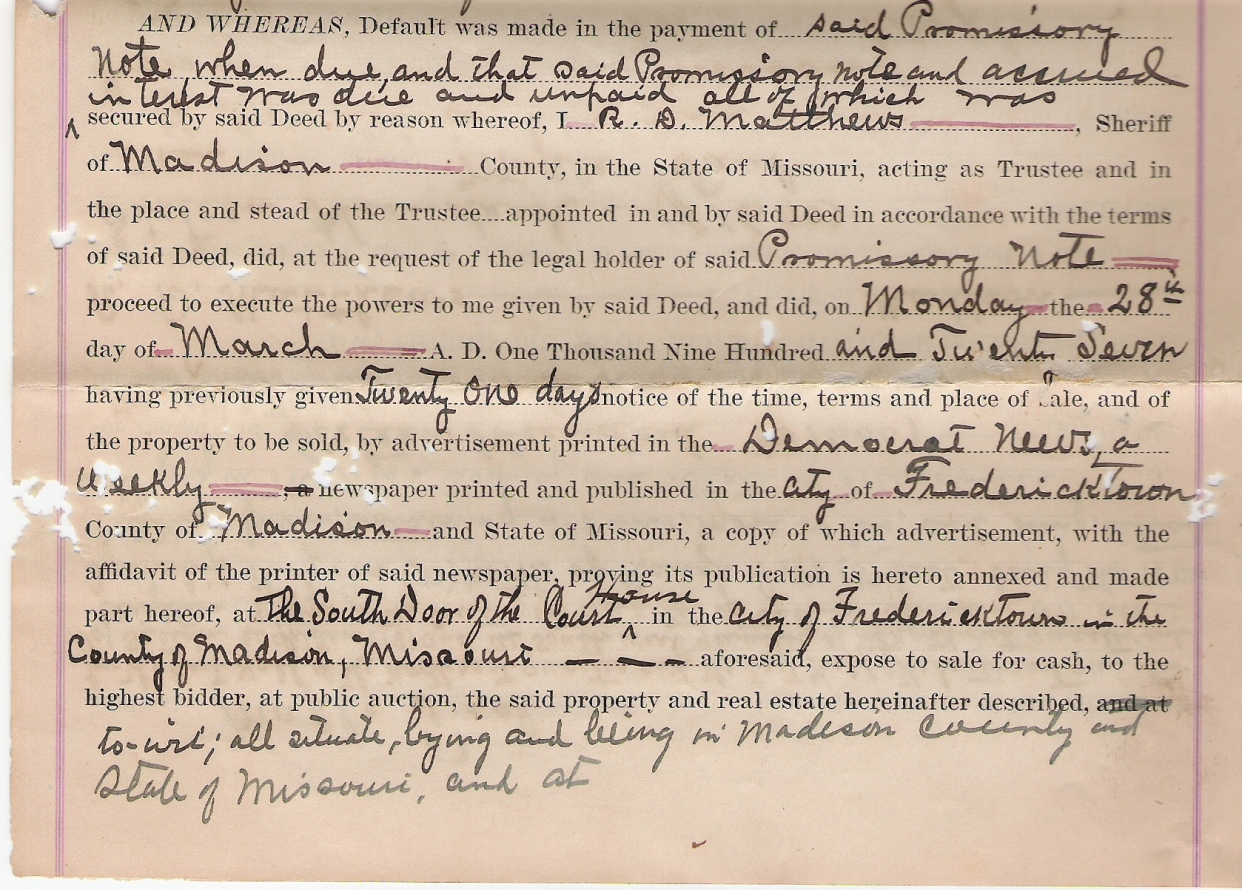 AND WHEREAS, Default was made in the payment of said Promissory
Note, when due, and that said Promissory note and accrued
interest was due and unpaid all of which was
^ secured by said Deed by reason whereof, I R. D. Matthews, Sheriff
of Madison County, in the State of Missouri, acting as Trustee and in
the place and stead of the Trustee....appointed in and by said Deed in accordance with the terms
of said Deed, did, at the request of the legal holder of said Promissory Note
proceed to execute the powers to me given by said Deed, and did, on Monday the 28th
day of March A. D. One Thousand Nine Hundred and Twenty Seven
having previously given Twenty One days notice of the time, terms and place of sale, and of
the property to be sold, by advertisement printed in the Democrat News, a
Weekly, a newspaper printed and published in the City of Fredericktown
County of Madison and State of Missouri, a copy of which advertisement, with the
affidavit of the printer of said newspaper, proving its publication is hereto annexed and made
part hereof, at the South Door of the Court ^ House in the City of Fredericktown in the
County of Madison, Missouri — — — aforesaid, expose to sale for cash, to the
highest bidder, at public auction, the said property and real estate hereinafter described, and at
to-wit; all situate, lying and being in Madison County and
State of Missouri, and at